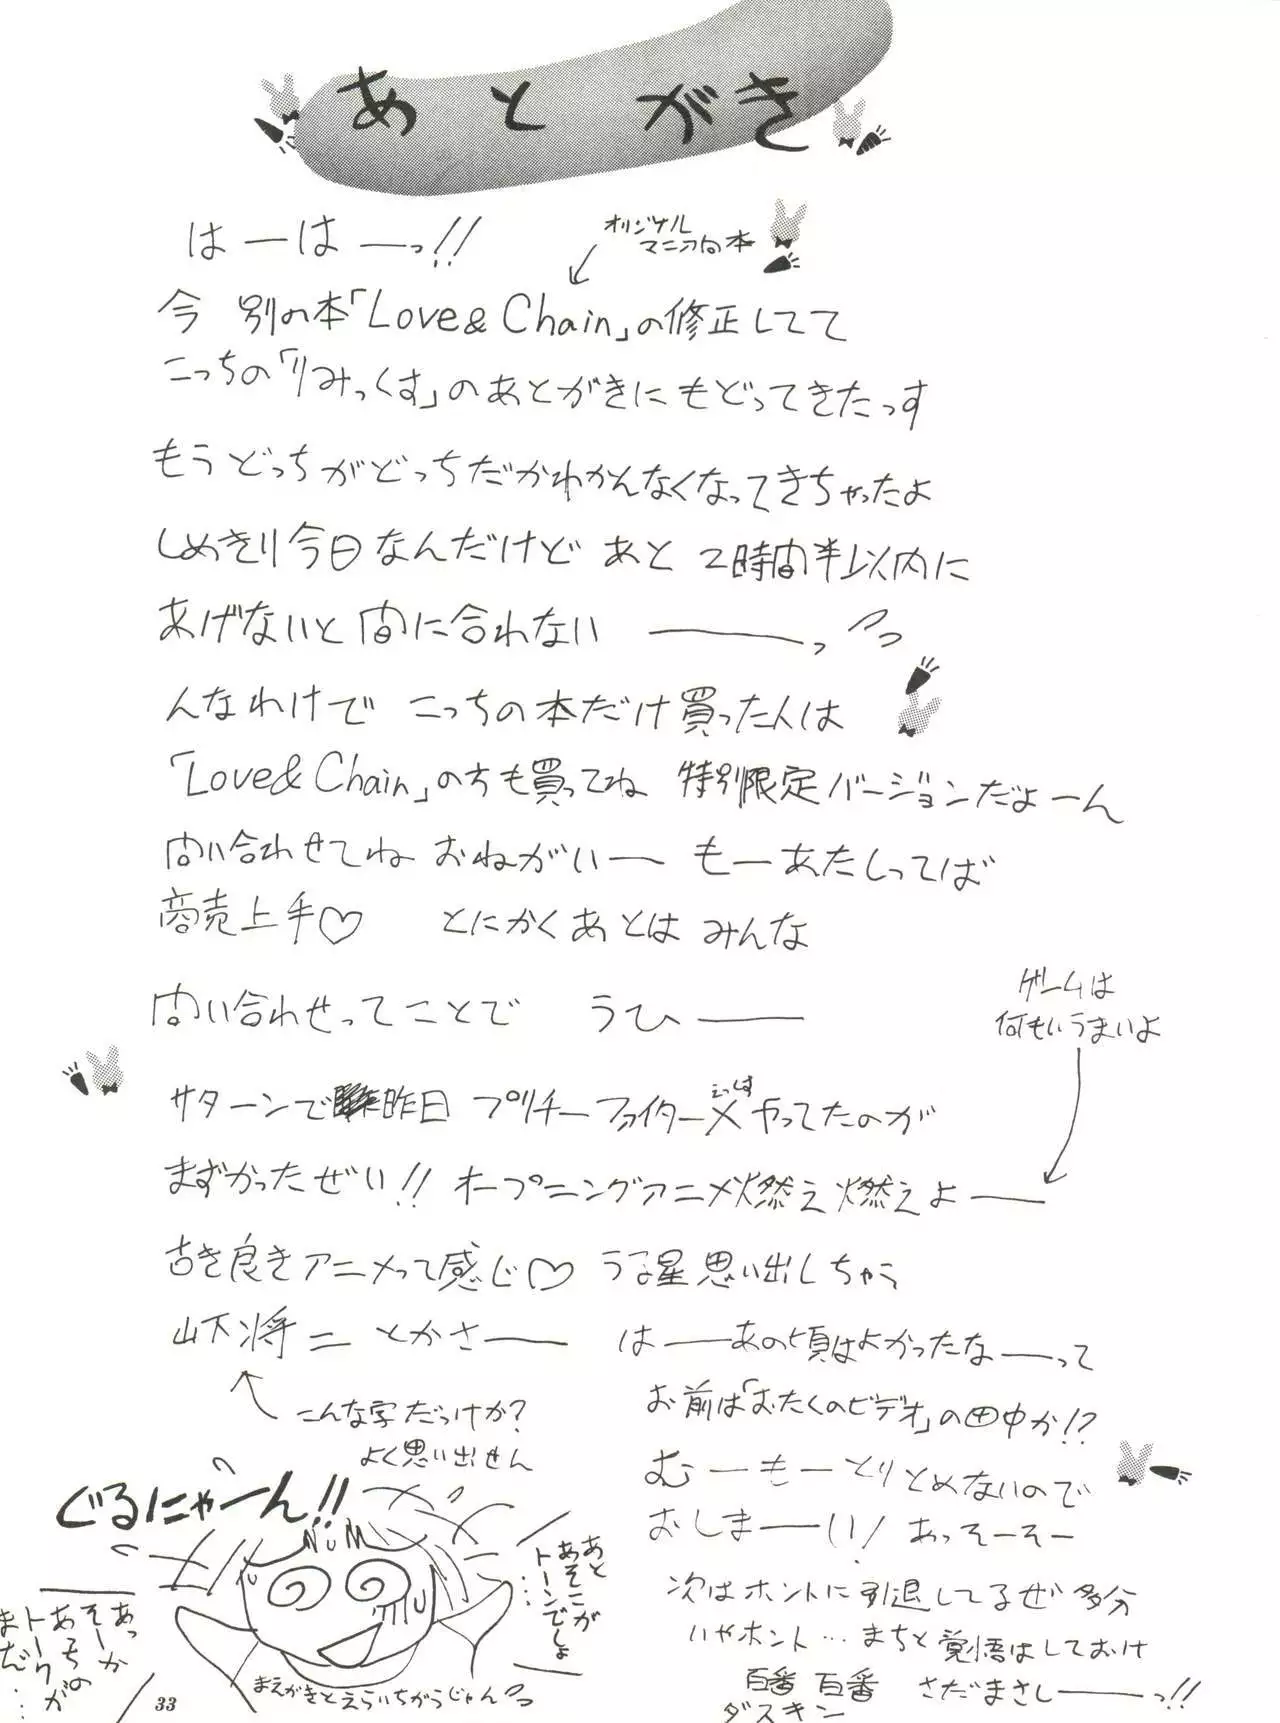 あとがき
はーはーっ!!
オリジナル
マニア向本
今 別の本「Love& Chain」の修正してて
こっちの「りみっくす」のあとがきにもどってきたっす
もうどっちがどっちだかわかんなくなってきちゃったよ
しめきり今日なんだけど あと 2時間半以内に
あげないと間に合わない ーーーっ
んなわけで こっちの本だけ買った人は
「Love& Chain」の方も買ってね 特別限定バージョンだよーん
問い合わせてね おねがいー もーあたしってば
商売上手♡ とにかくあとは みんな
問い合わせってことで うひーー
ゲームは
何もいうまいよ
サターンで昨日 プリチーファイターX やってたのが
えっくす
まずかったぜい!! オープニングアニメ燃え燃えよーー
古き良きアニメって感じ♡ うる星思い出しちゃう
山下将二 とかさーー
こんな字だっけか?
よく思い出せん
はーーあの頃はよかったなーーって
お前は「おたくのビデオ」の田中か!?
むーもーとりとめないので
おしまーーい! あっそーそー
次はホントに引退してるぜ 多分
いやホント…まちと覚悟はしておけ
百番 百番 さだまさしーーっ!!
ダスキン
ぐるにゃーん!!
あと
あそこが
トーンでしょ
……
あっか
そーか
あっちの
トークが
まだ……
まえがきとえらいちがうじゃん
33